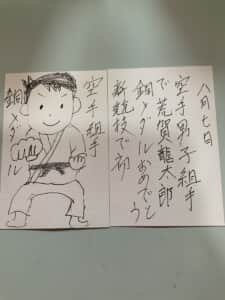 八月七日
空手男子組手
で荒賀龍太郎
銅メダルおめでとう
新競技で初
空手組手
銅メダル